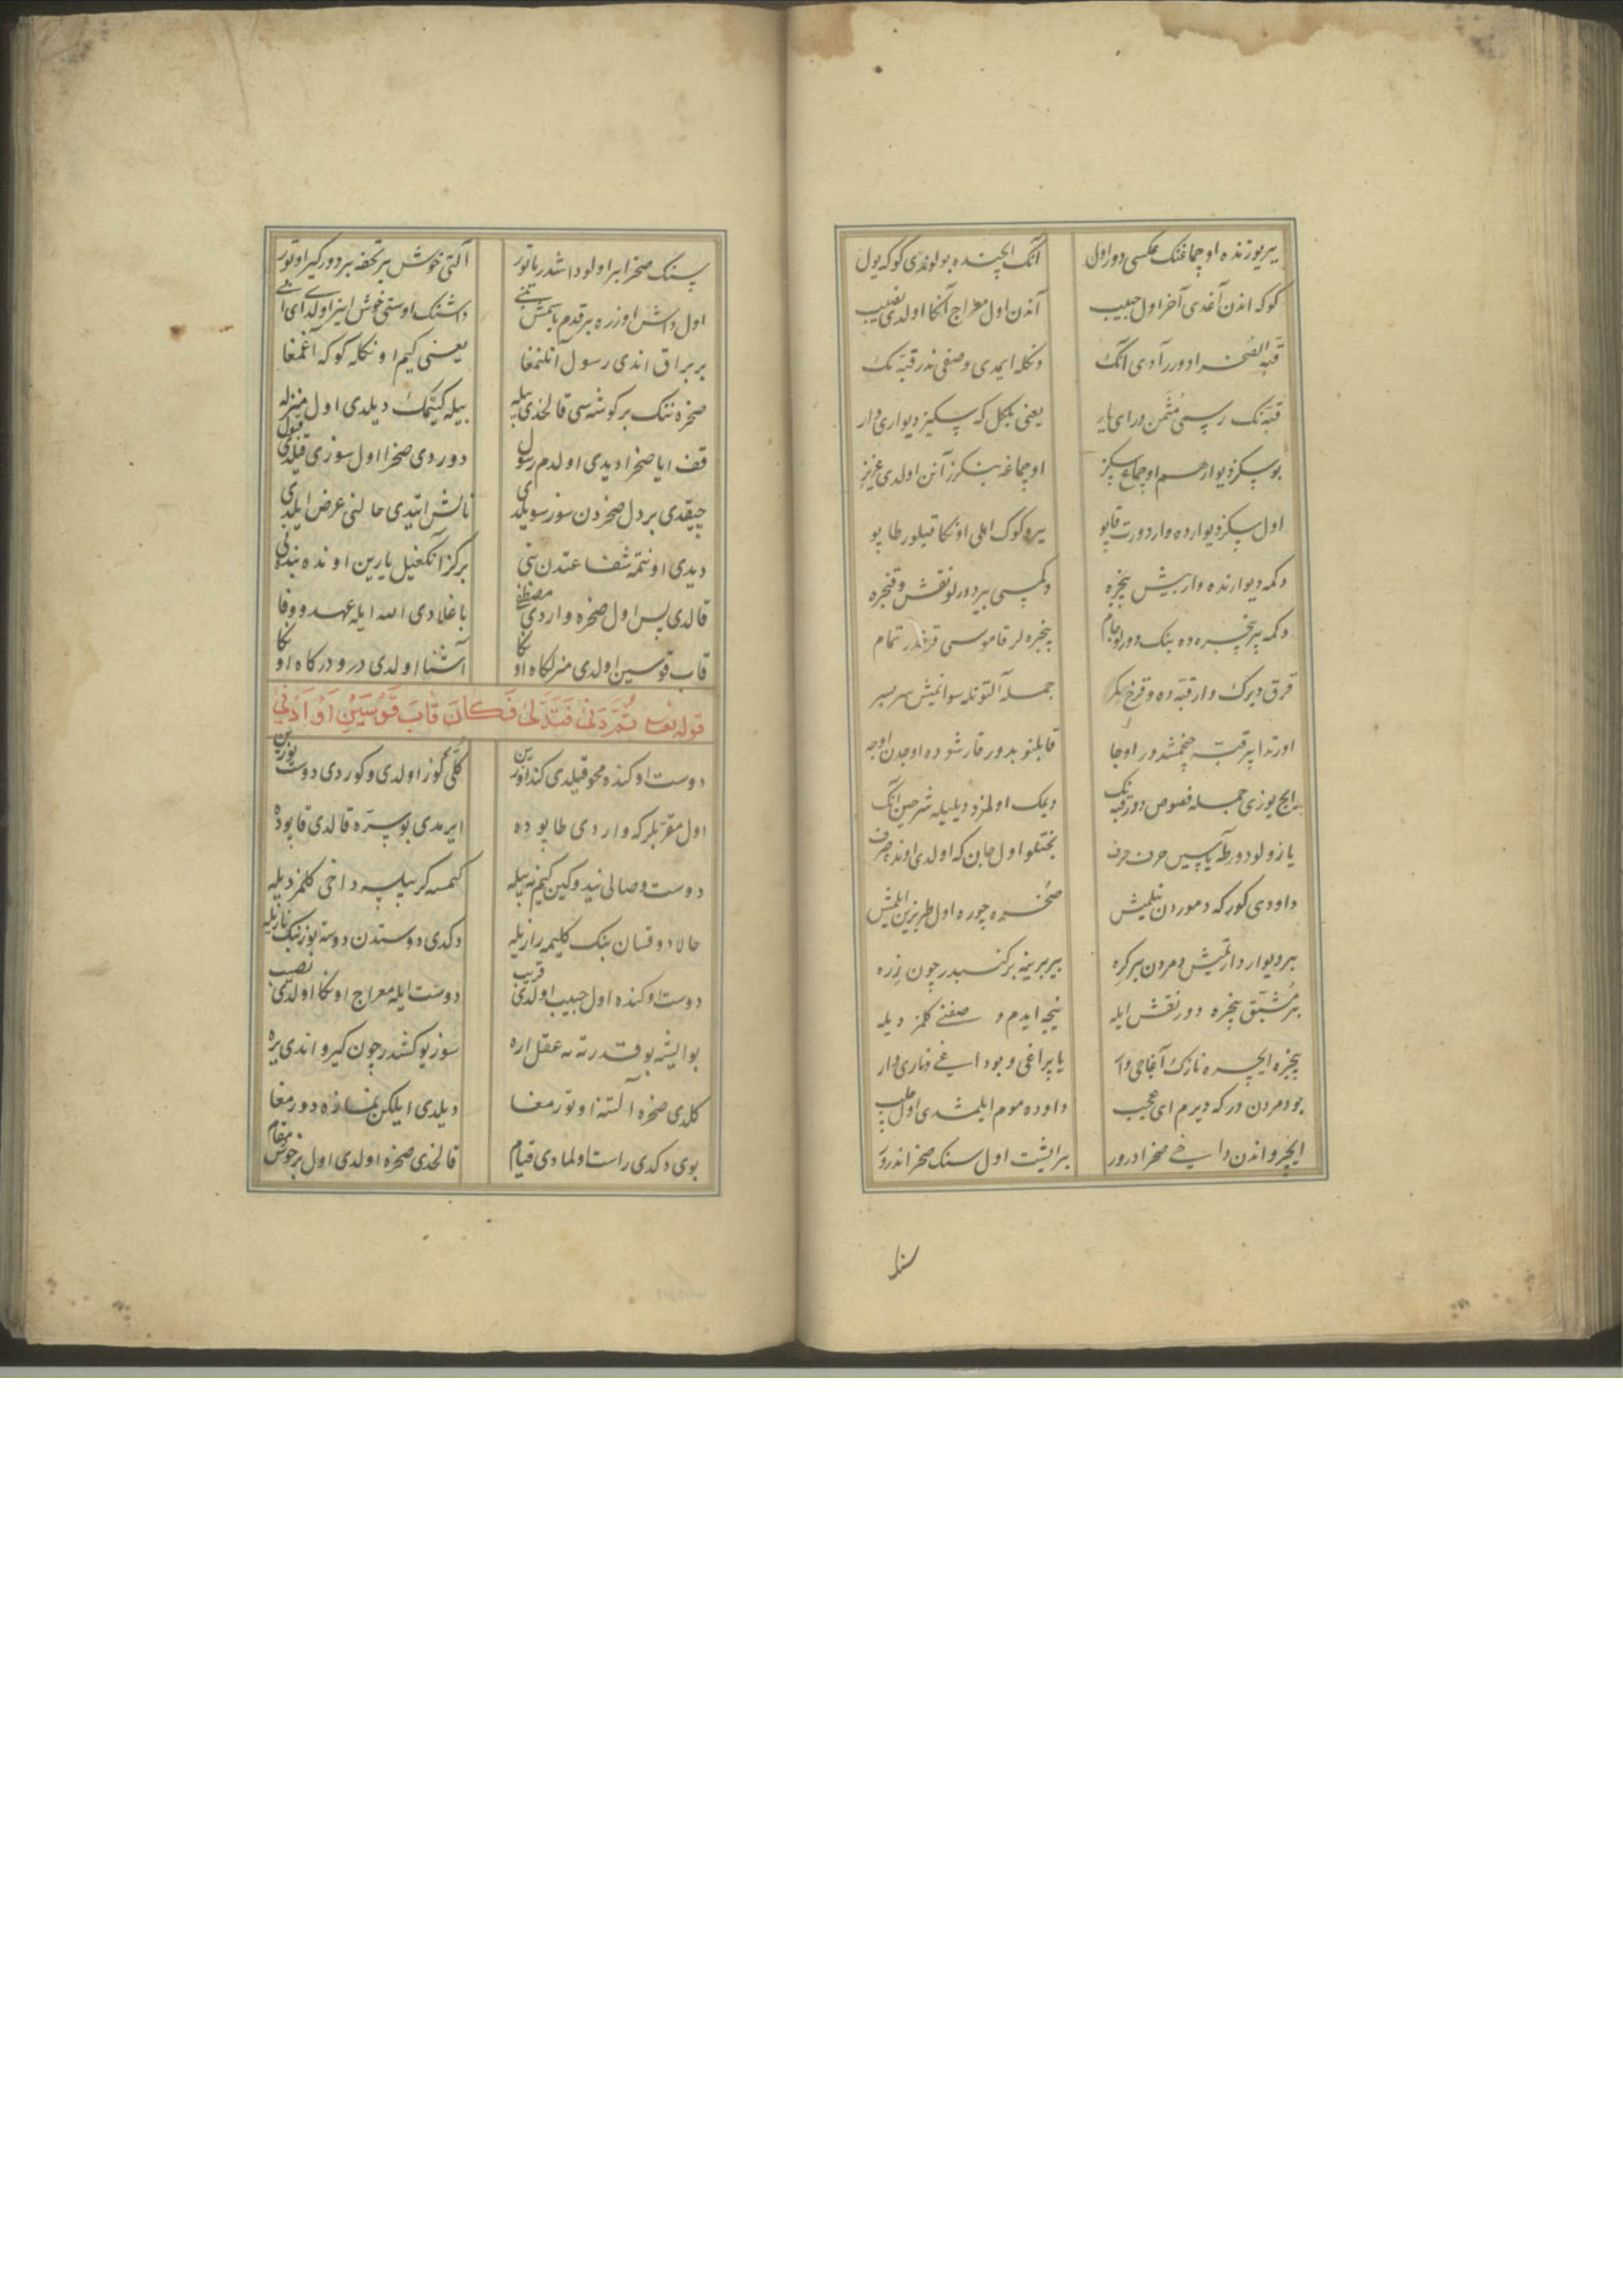 یر یوزنده اوچماغنک عکسی دور اول آنک ایچنده بولوندی کوکه یول
کوکه اندن آغدی آخر اول حبیب آندن اول معراج آنکا اولدی نصیب
قبّة الصخرا دورر آدی آنک دنکله ایمدی وصفی ندر قبّه نک
قبّه نک رسمی مثمّن در ای یار یعنی بلکل که سکیز دیواری وار
بو سکز دیوار هم اوچماغ سکز اوچماغه بنکزر آنن اولدی عزیز
اول سکز دیوارده وار دورت قاپو یر و کوک اهلی اونکا قیلور طاپو
دکمه دیوارنده وار بیش پنجره
دکمه بر پنجره ده بنک دورلو جام پنجره لر قاموسی تمام
قرق دیرک وار قبّه ده جمله آلتونله سوانمیش سر بسر
اورتدا بر قبّه
ایچ یوزی جمله فصوص دور قبّه نک دیمک اولمز دیلیله شرحین آنک
یازولودور طه یاسین حرف حرف بختلو اول جان که اولدی اونده صرف
داودی کور که دموردن نیلمیش صخره چوره اول طربزین ایلمیش
بر دیوار دارتمیش دمردن بر کره بیربرینه چون زره
بر مشبّق پنجره دور نقش ایله نیجه ایدم وصفنی کلمز دیله
پنجره ایچره نازک آغاجی وار یاپراغی و بوداغی و ناری وار
بو دمردن در که دیرم ای عجب داوده موم ایلمشدی اول چلب
ایچرو اندن داخی صخرا درور بر ایشت اول سنک صخرا ندرور
سنک
سنک صخرا بر اولو داشدر یاتور آلتی خوش بر تحفه یردور کیر اوتور
اول داش اوزره بر قدم باسمش نبی داشنک اوستی خوش ایز اولدی ای اخی
بر براق اندی رسول آتلنمغا یعنی کیم اونکله کوکه آغمغا
صخره ننک بر کوشه سی قالخدی بیله بیله کیتمک دیلدی اول منزله
قف ایا صخرا دیدی اولدم رسول دوردی صخرا اول سوزی قیلدی قبول
چیقدی بر دل صخردن سوز سویلدی نالش ایتدی حالنی عرض ایلدی
دیدی اونتمه شفاعتدن بنی یارین اونده بنی
قالدی پس اول صخره واردی مصطفی باغلادی الله ایله عهد و وفا
قاب قوسین اولدی منزلکاه اوکا آشنا اولدی در و درکاه اوکا
قوله تعالی ثُمَّ دَنٰی فَتَدَلّٰی فَکَانَ قَابَ قَوْسَیْنِ اَوْ اَدْنٰی
دوست اوکنده محو قیلدی کندازین کلّی کوز اولدی و کوردی دوست یوزین
اول مقرّبلر که واردی طاپوده ایرمدی بو سرّه قالدی قاپوده
دوست وصالی نیدوکین کیم نه بیله کیمسه کر بیلسه داخی کلمز دیله
حالا دوقسان بنک کلیمه رازیله دکدی دوستدن دوسته یوز بنک نازیله
دوست اوکنده اول حبیب اولدی قریب دوست ایله معراج اونکا اولدی نصیب
بو ایشه بو قدرته نه عقل اره سوز یوکشدر چون کیرو اندی یره
کلدی صخره آلتنه اوتورمغا دیلدی ایلکن نمازه دورمغا
بوی دکدی راست اولمادی قیام قالخدی صخره اولدی اول بر خوش مقام